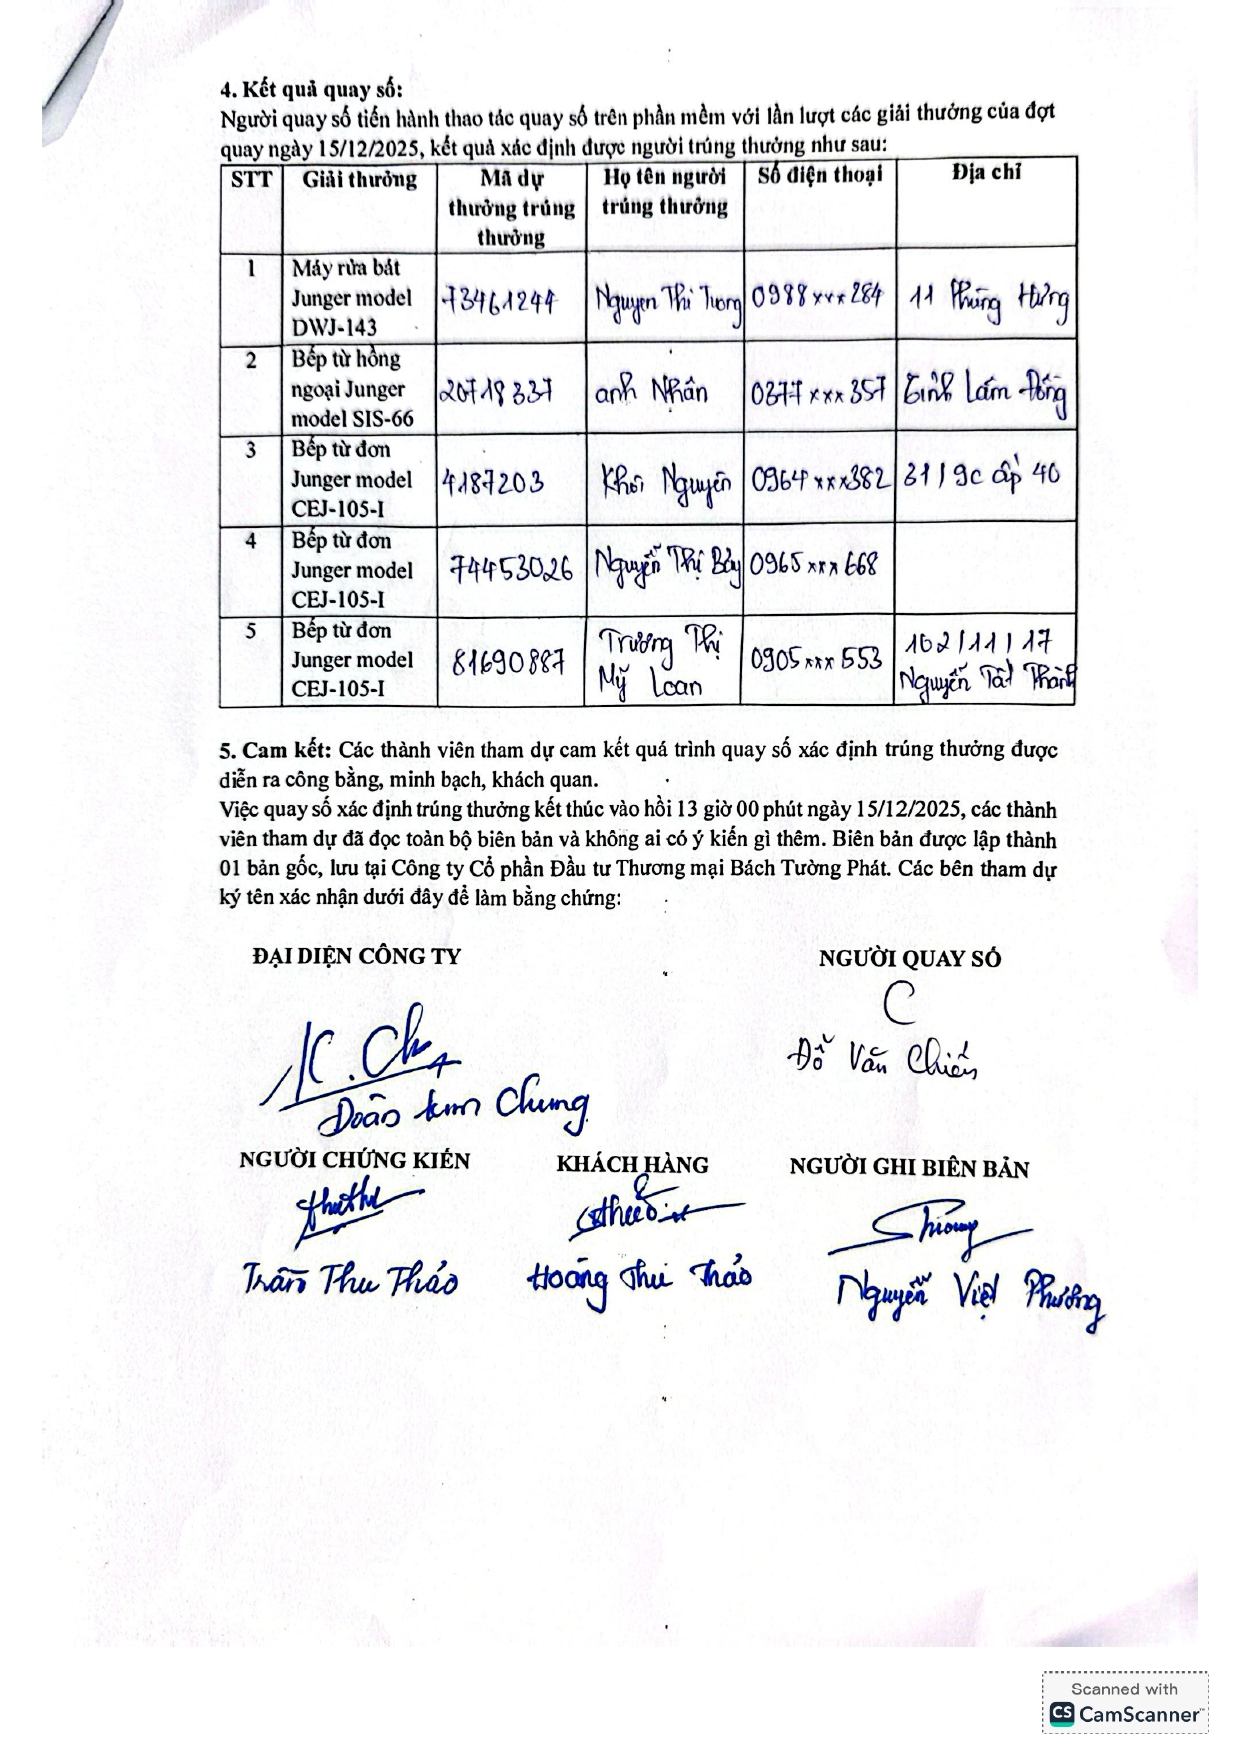 4. Kết quả quay số:
Người quay số tiến hành thao tác quay số trên phần mềm với lần lượt các giải thưởng của đợt
quay ngày 15/12/2025, kết quả xác định được người trúng thưởng như sau:
STT Giải thưởng Mã dự thưởng trúng thưởng Họ tên người trúng thưởng Số điện thoại Địa chỉ
1 Máy rửa bát Junger model DWJ-143 73461244 Nguyen Thi Tuong 0988xxx284 11 Phùng Hưng
2 Bếp từ hồng ngoại Junger model SIS-66 20718337 anh Nhân 0377xxx357 Tỉnh Lâm Đồng
3 Bếp từ đơn Junger model CEJ-105-I 4187203 Khôi Nguyên 0964xxx382 31/9c ấp 40
4 Bếp từ đơn Junger model CEJ-105-I 74453026 Nguyễn Thị Bảy 0965xxx668
5 Bếp từ đơn Junger model CEJ-105-I 81690887 Trương Thị Mỹ Loan 0905xxx553 162/11/17 Nguyễn Tất Thành
5. Cam kết: Các thành viên tham dự cam kết quá trình quay số xác định trúng thưởng được
diễn ra công bằng, minh bạch, khách quan.
Việc quay số xác định trúng thưởng kết thúc vào hồi 13 giờ 00 phút ngày 15/12/2025, các thành
viên tham dự đã đọc toàn bộ biên bản và không ai có ý kiến gì thêm. Biên bản được lập thành
01 bản gốc, lưu tại Công ty Cổ phần Đầu tư Thương mại Bách Tường Phát. Các bên tham dự
ký tên xác nhận dưới đây để làm bằng chứng:
ĐẠI DIỆN CÔNG TY NGƯỜI QUAY SỐ
Đỗ Văn Chiến
Doãn Kim Chung
NGƯỜI CHỨNG KIẾN KHÁCH HÀNG NGƯỜI GHI BIÊN BẢN
Trần Thu Thảo Hoàng Thu Thảo Nguyễn Việt Phương
Scanned with
CS CamScanner